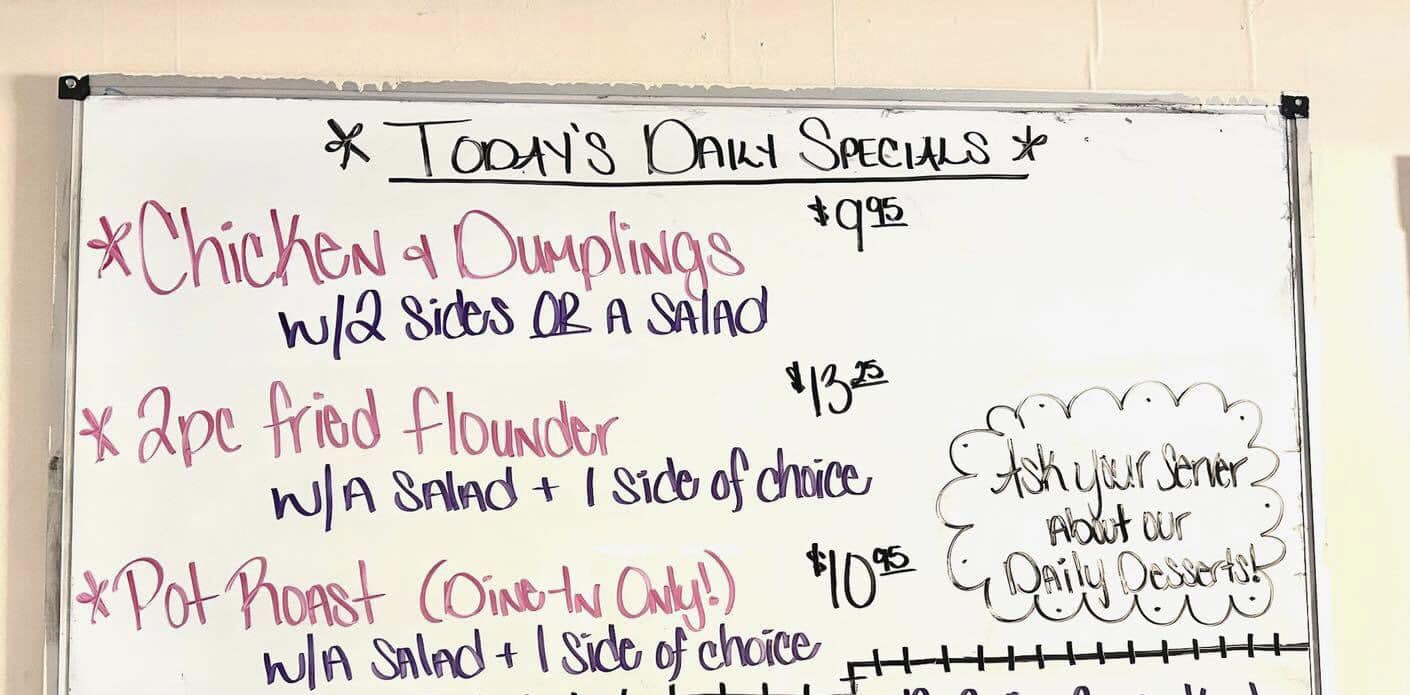 * TODAY'S DAILY SPECIALS *
* Chicken & Dumplings $9.95
w/2 Sides OR A SALAD
* 2pc fried flounder $13.25
w/A SALAD + 1 Side of choice
* Pot Roast (Dine-In Only!) $10.95
w/A SALAD + 1 Side of choice
Ask your Server
About our
Daily Desserts!